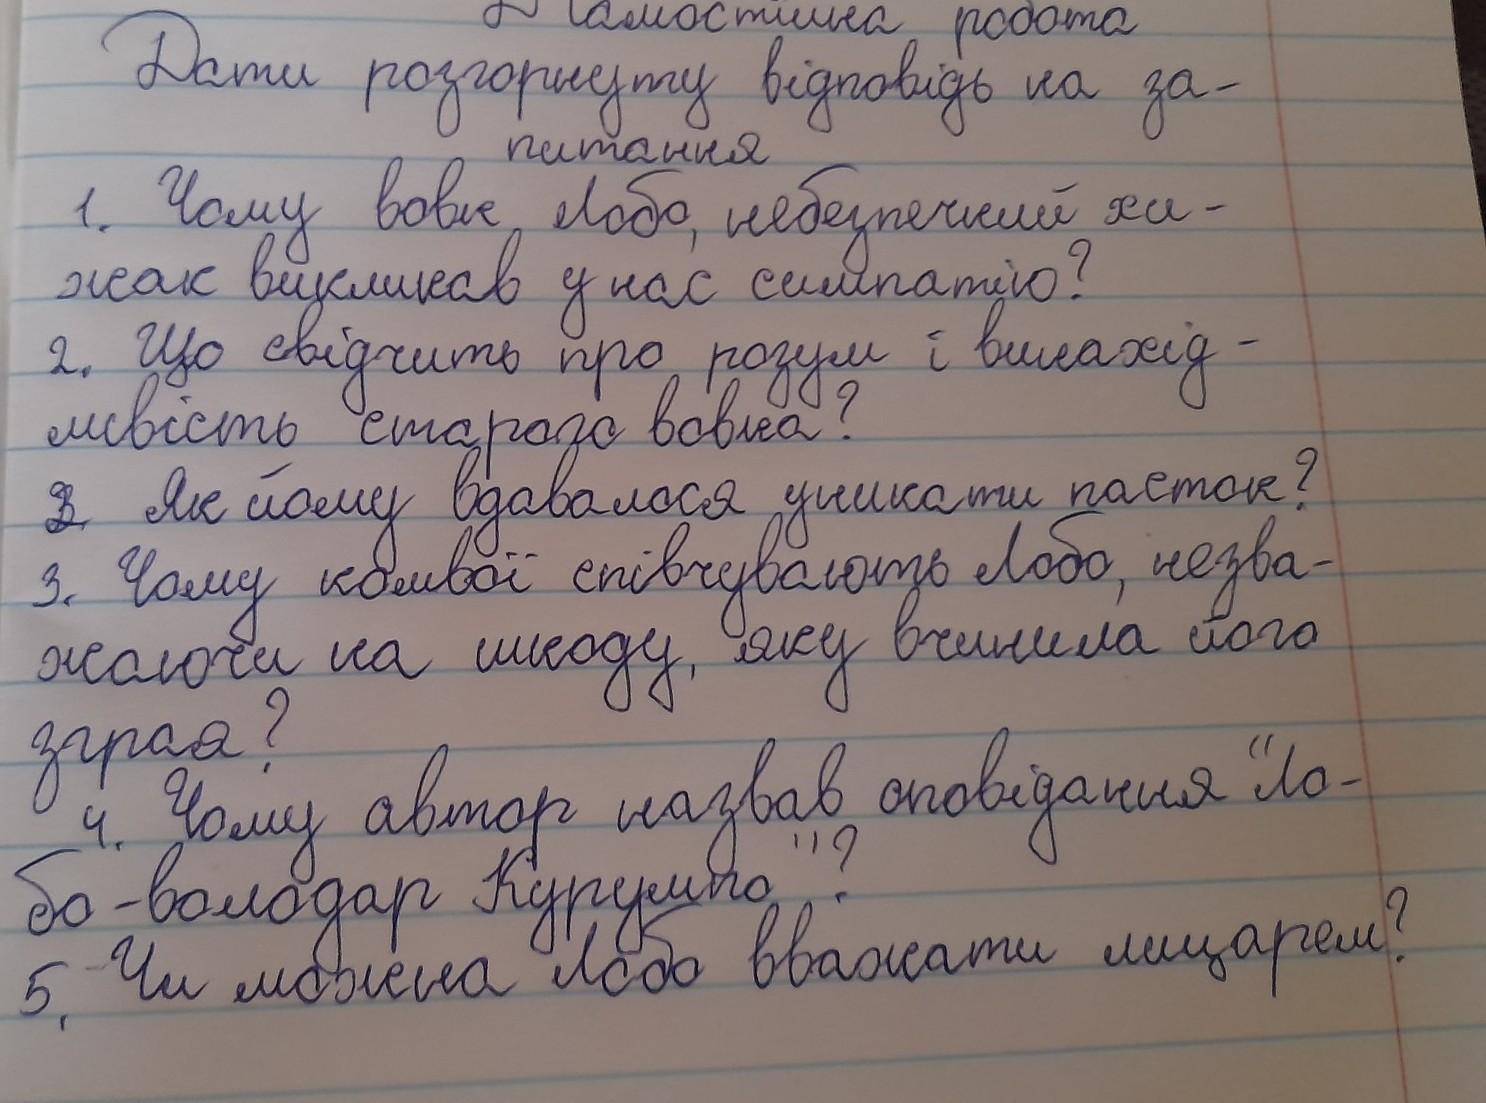 Самостійна робота
Дати розгорнуту відповідь на за-
питання
1. Чому вовк Лобо, небезпечний хи-
жак викликав у нас симпатію?
2. Що свідчить про розум і винахід-
ливість старого вовка?
2. Як йому вдавалося уникати пасток?
3. Чому ковбої співчувають Лобо, незва-
жаючи на шкоду, яку вчинила його
зграя?
4. Чому автор назвав оповідання "Ло-
бо-володар Курумпо"?
5. Чи можна Лобо вважати лицарем?